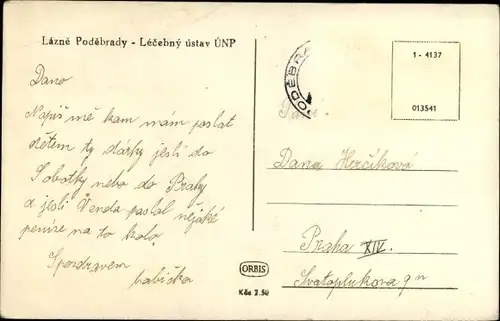 Lázně Poděbrady - Léčebný ústav ÚNP
Dano
Napiš mě kam mám poslat
dětem ty dárky jesli do
Sobotky nebo do Prahy
a jesli Venda poslal nějaké
peníze na to kolo
Spozdravem
babička
PODĚBRA
1 - 4137
013541
Paní
Dana Herčíková
Praha XIV.
Svatoplukova 9
ORBIS
Kčs 2.50